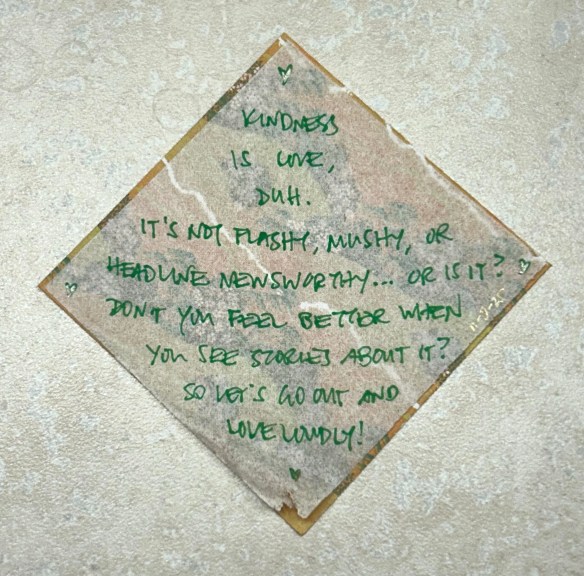 KINDNESS
IS LOVE,
DUH.
IT'S NOT FLASHY, MUSHY, OR
HEADLINE NEWSWORTHY... OR IS IT?
DON'T YOU FEEL BETTER WHEN
YOU SEE STORIES ABOUT IT?
SO LET'S GO OUT AND
LOVE LOUDLY!